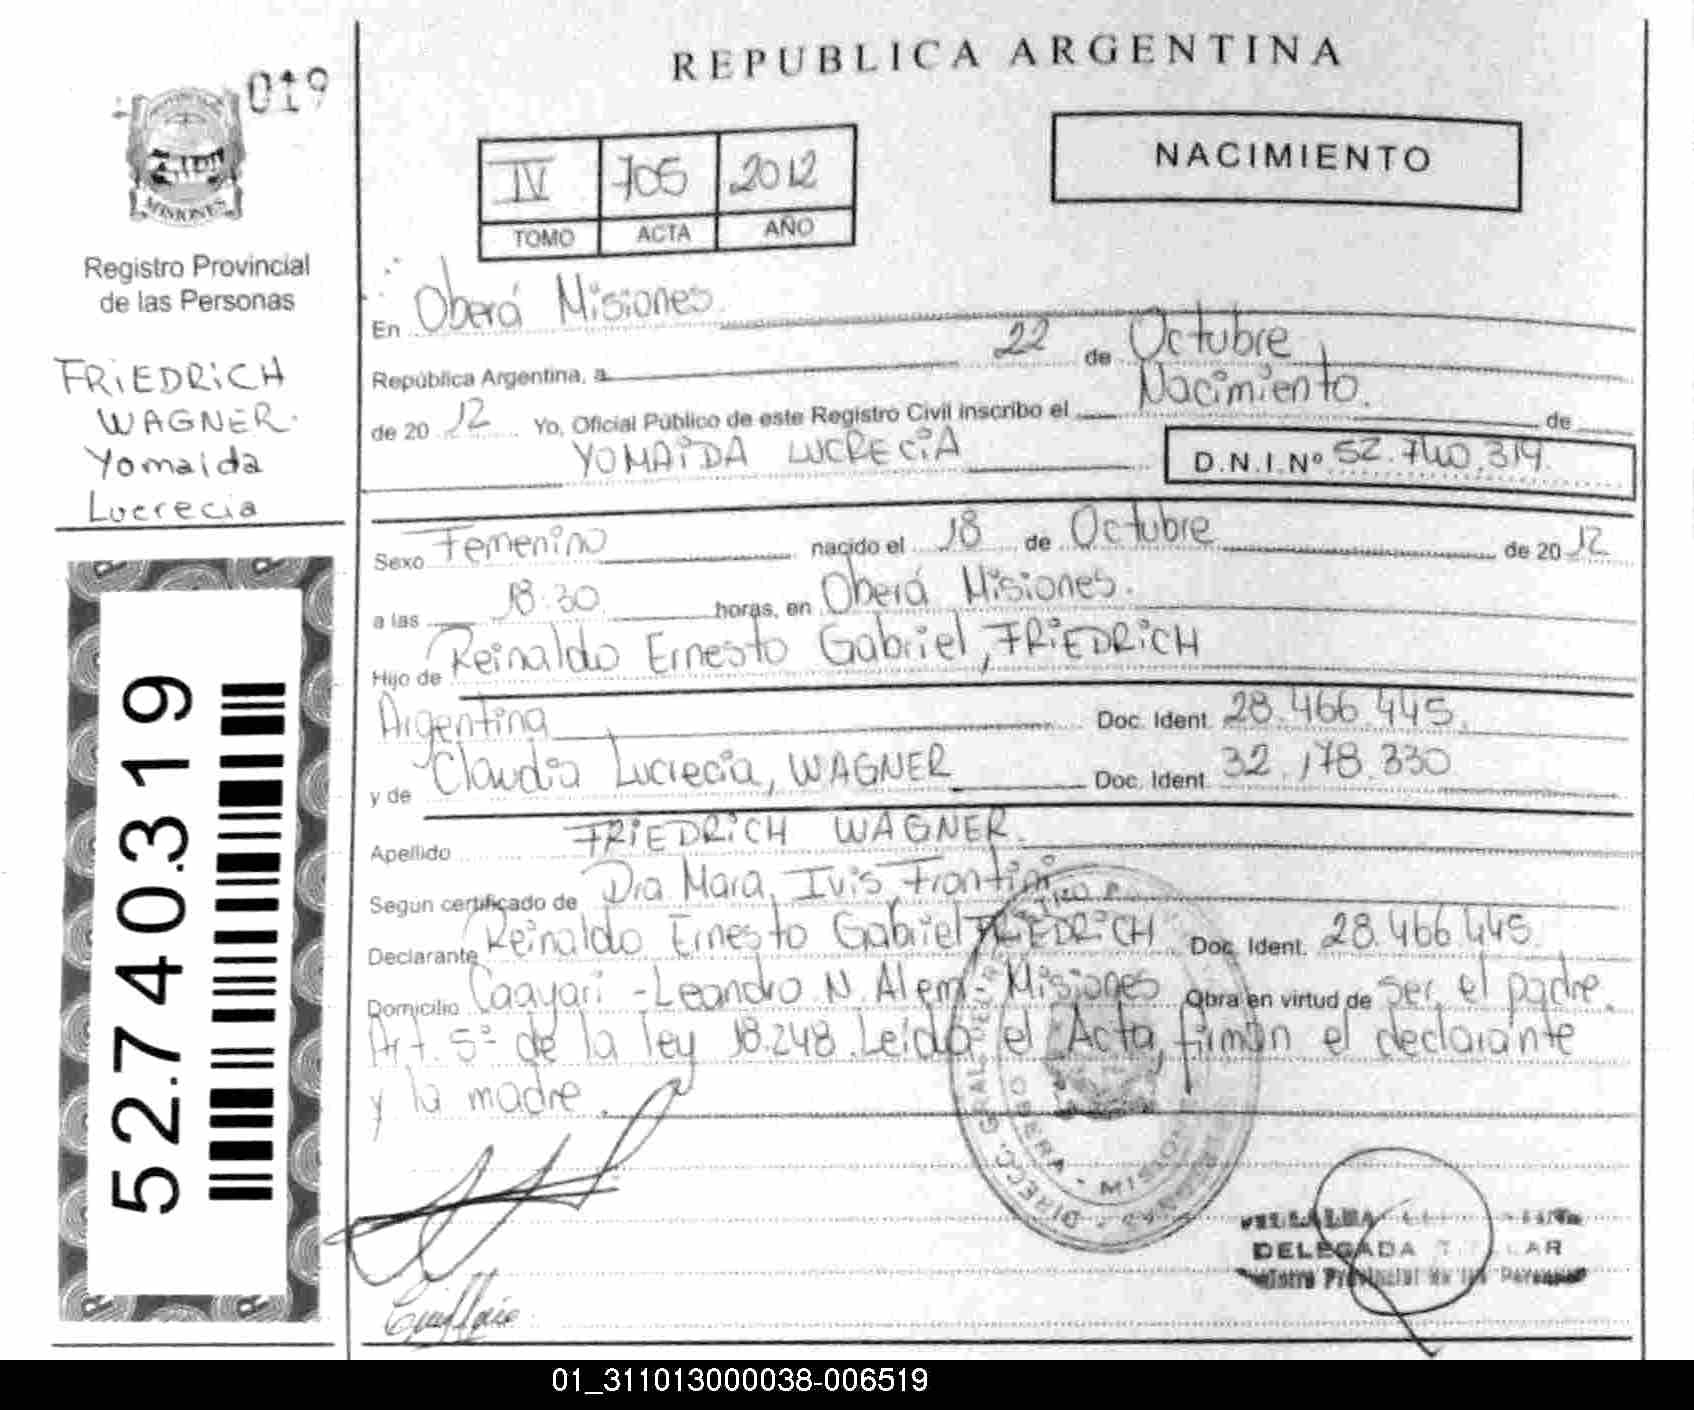 REPUBLICA ARGENTINA
019
MISIONES
Registro Provincial
de las Personas
FRiEDRiCH
WAGNER.
Yomaida
Lucrecia
52.740.319
IV 705 2012
TOMO ACTA AÑO
NACIMIENTO
En Oberá Misiones
República Argentina, a 22 de Octubre
de 20 12 Yo, Oficial Público de este Registro Civil inscribo el Nacimiento. de
YOMAiDA LUCRECiA D.N.I.Nº 52.740.319.
Sexo Femenino nacido el 18 de Octubre de 20 12
a las 18.30 horas, en Oberá Misiones.
Hijo de Reinaldo Ernesto Gabriel, FRiEDRiCH
Argentina Doc. Ident. 28.466.445.
y de Claudia Lucrecia, WAGNER Doc. Ident. 32.178.330
Apellido FRiEDRiCH WAGNER.
Según certificado de Dra Mara, Ivis Frontini
Declarante Reinaldo Ernesto Gabriel FRiEDRiCH Doc. Ident. 28.466.445
Domicilio Caayari - Leandro. N. Alem - Misiones Obra en virtud de Ser el padre.
Art. 5º de la ley 18.248. Leída el Acta, firman el declarante
y la madre.
DIRECC. GRAL.
OBERA - MISIONES
VILLALBA
DELEGADA TITULAR
Registro Provincial de las Personas
01_311013000038-006519